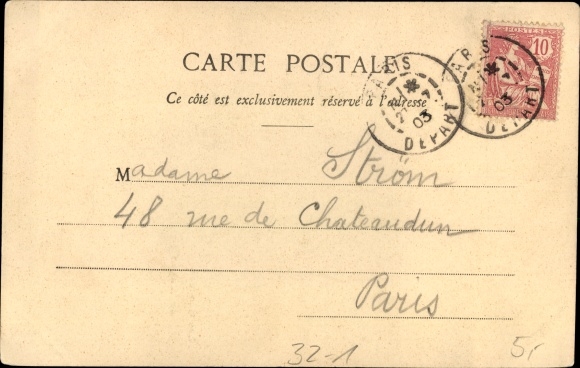 CARTE POSTALE
Ce côté est exclusivement réservé à l'adresse
POSTES
10
PARIS
DEPART
03
ARIS
DEPART
03
Madame Ström
48 rue de Chateaudun
Paris
32-1
5,-